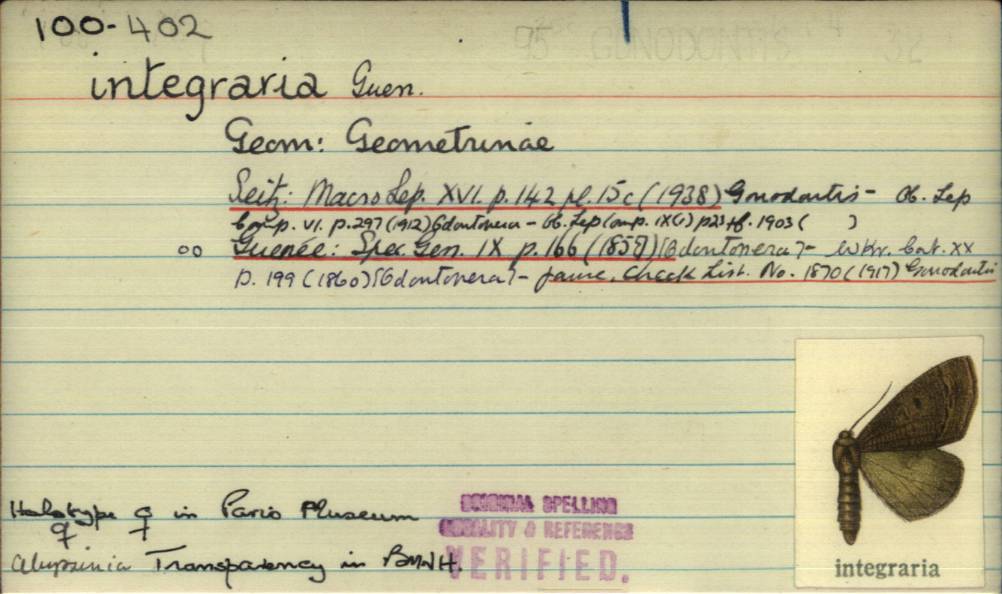 100-402
95 GONODONTIS 32
integraria Guen.
Geom: Geometrinae
Seitz: Macro Lep. XVI. p. 142 pl. 15c (1938) Gonodontis - Ob. Lep
Comp. VI. p. 297 (1912) Odontonera - Ob. Lep Comp. IX(1) p23 1903 ( )
oo Guenée: Spec. Gen. IX p. 166 (1857) [Odontonera] - Wkr. Cat. XX
p. 199 (1860) [Odontonera] - Check List. No. 1870 (1917) Gonodontis
Holotype ♀ in Paris Museum
♀
Abyssinia Transparency in BMNH.
ORIGINAL SPELLING
LOCALITY & REFERENCE
VERIFIED.
integraria